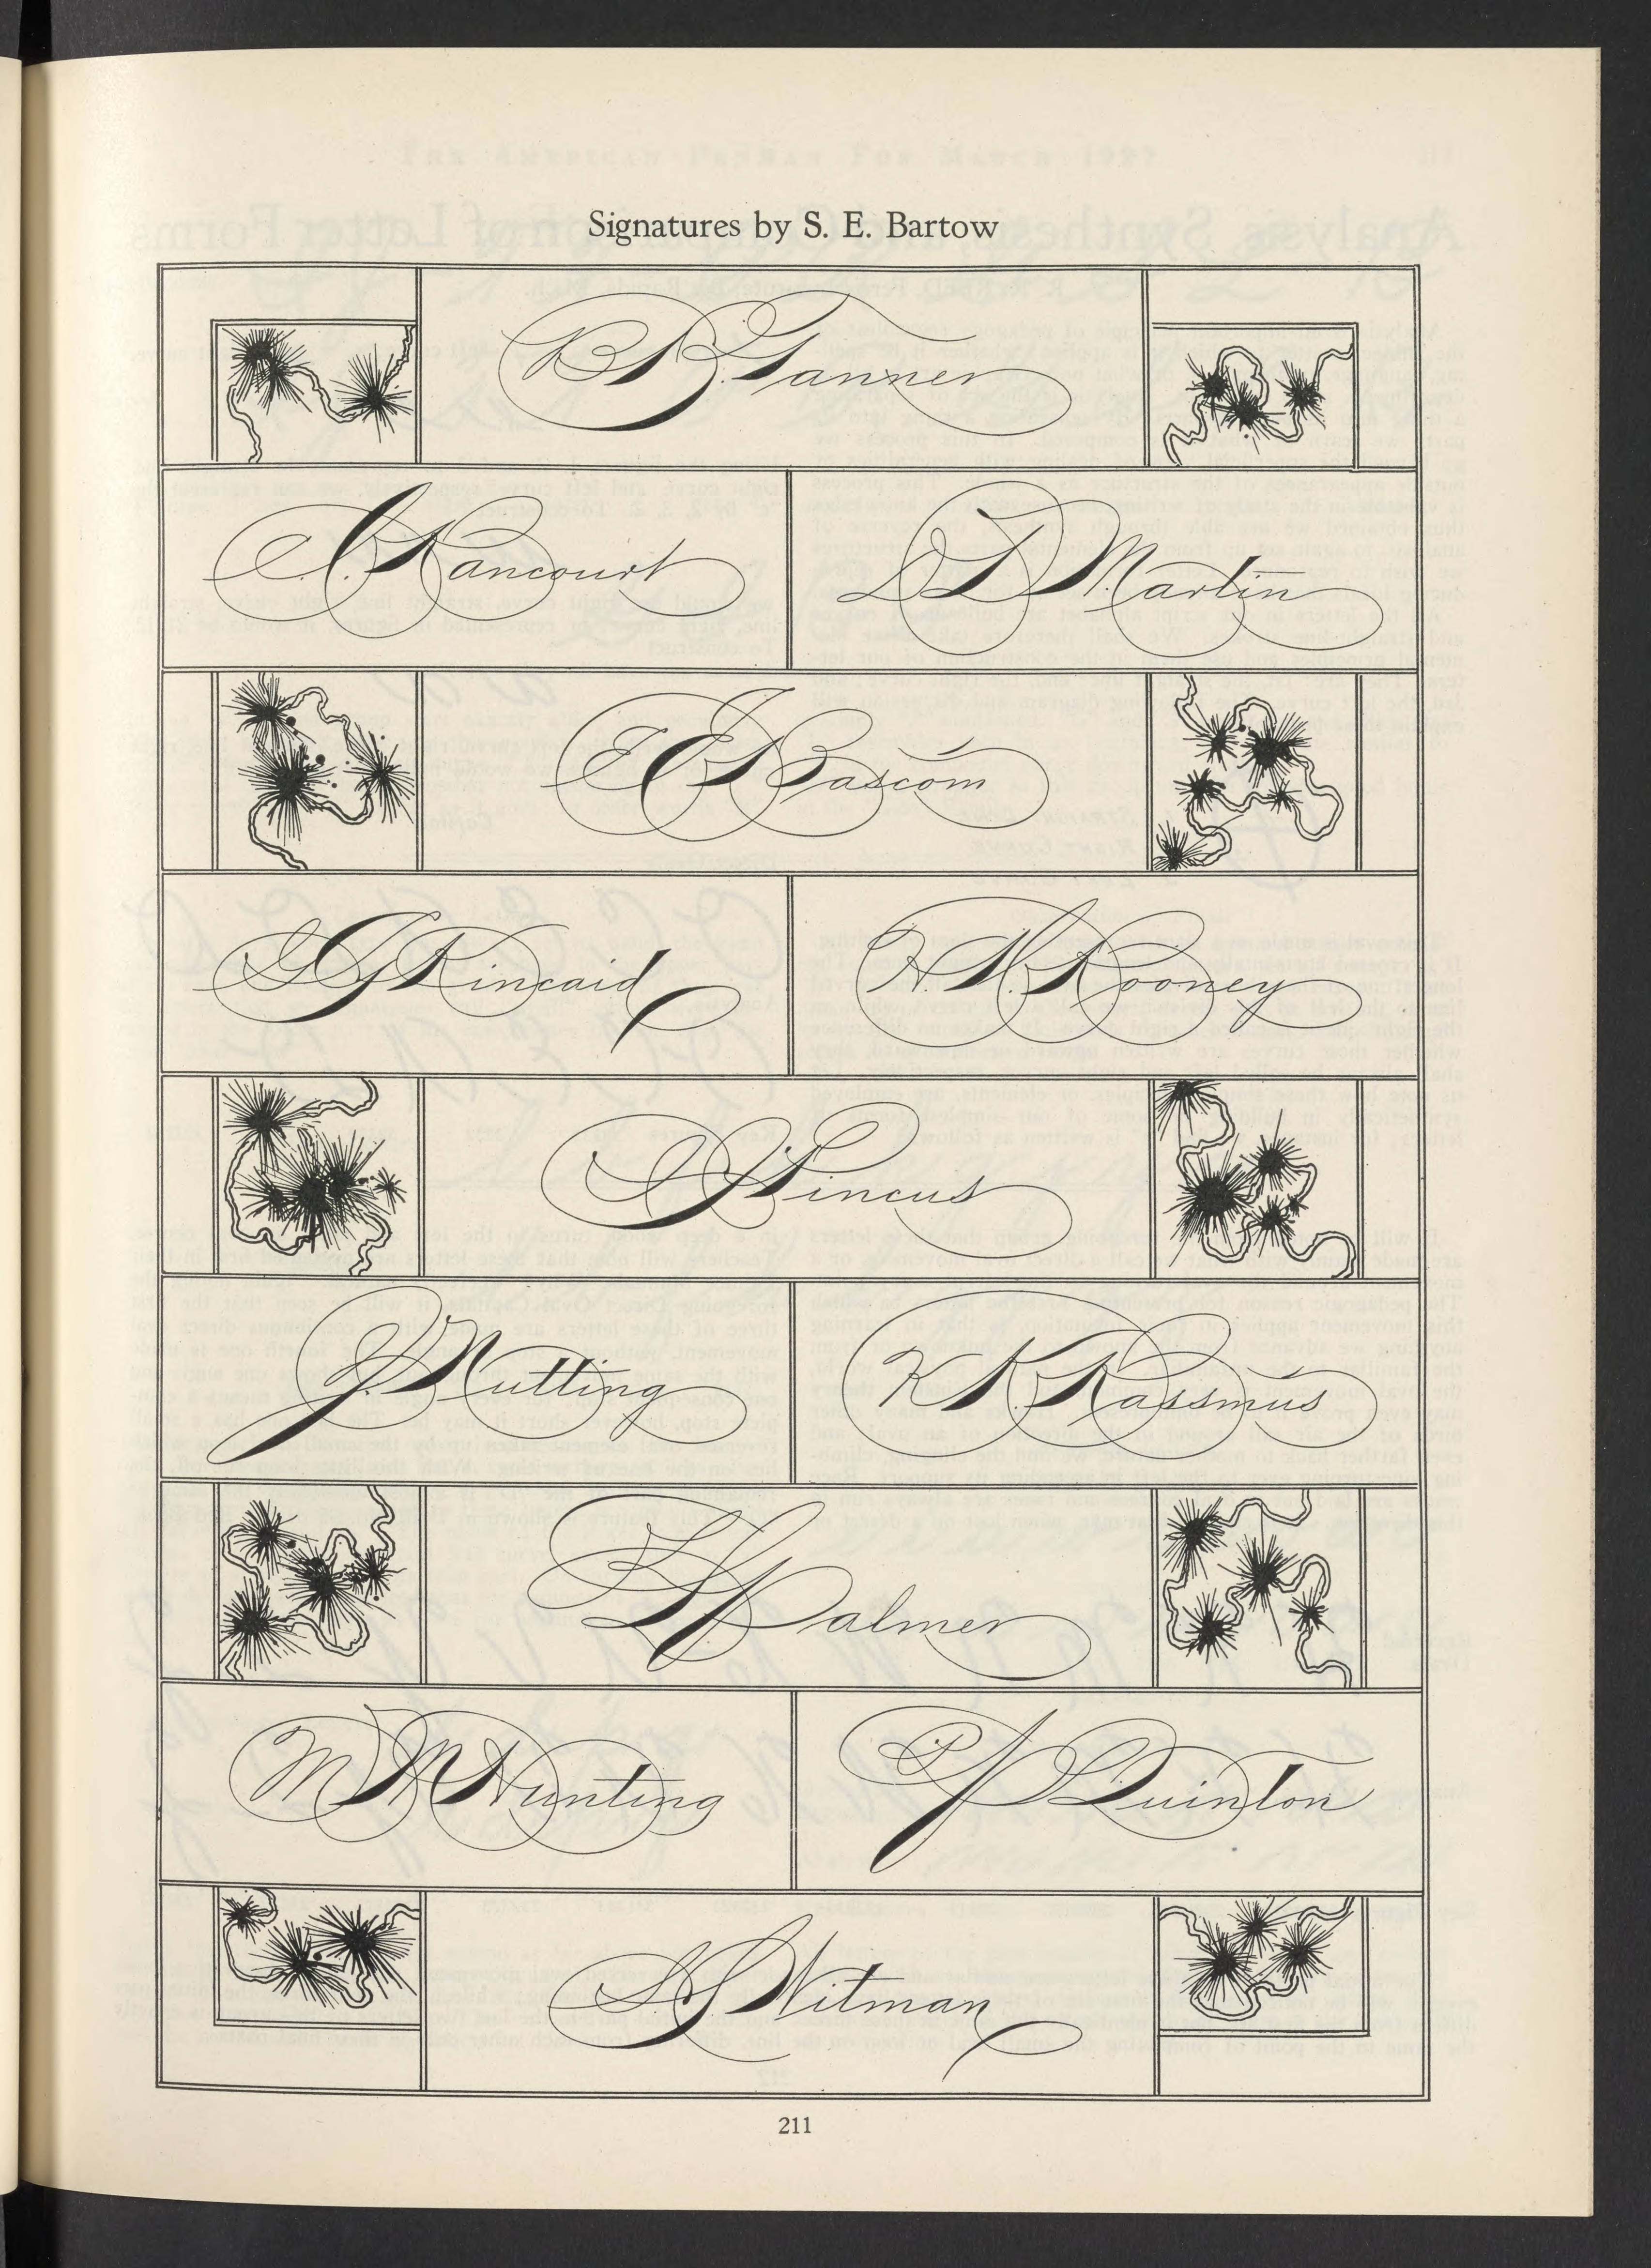 Signatures by S. E. Bartow
B. B. Tanner
C. C. Rancourt
D. D. Martin
E. E. Bascom
G. G. Kincaid
H. H. Rooney
I. I. Pincus
J. J. Nutting
K. K. Rassmus
L. L. Palmer
M. M. Nunting
P. P. Quinton
S. S. Witman
211